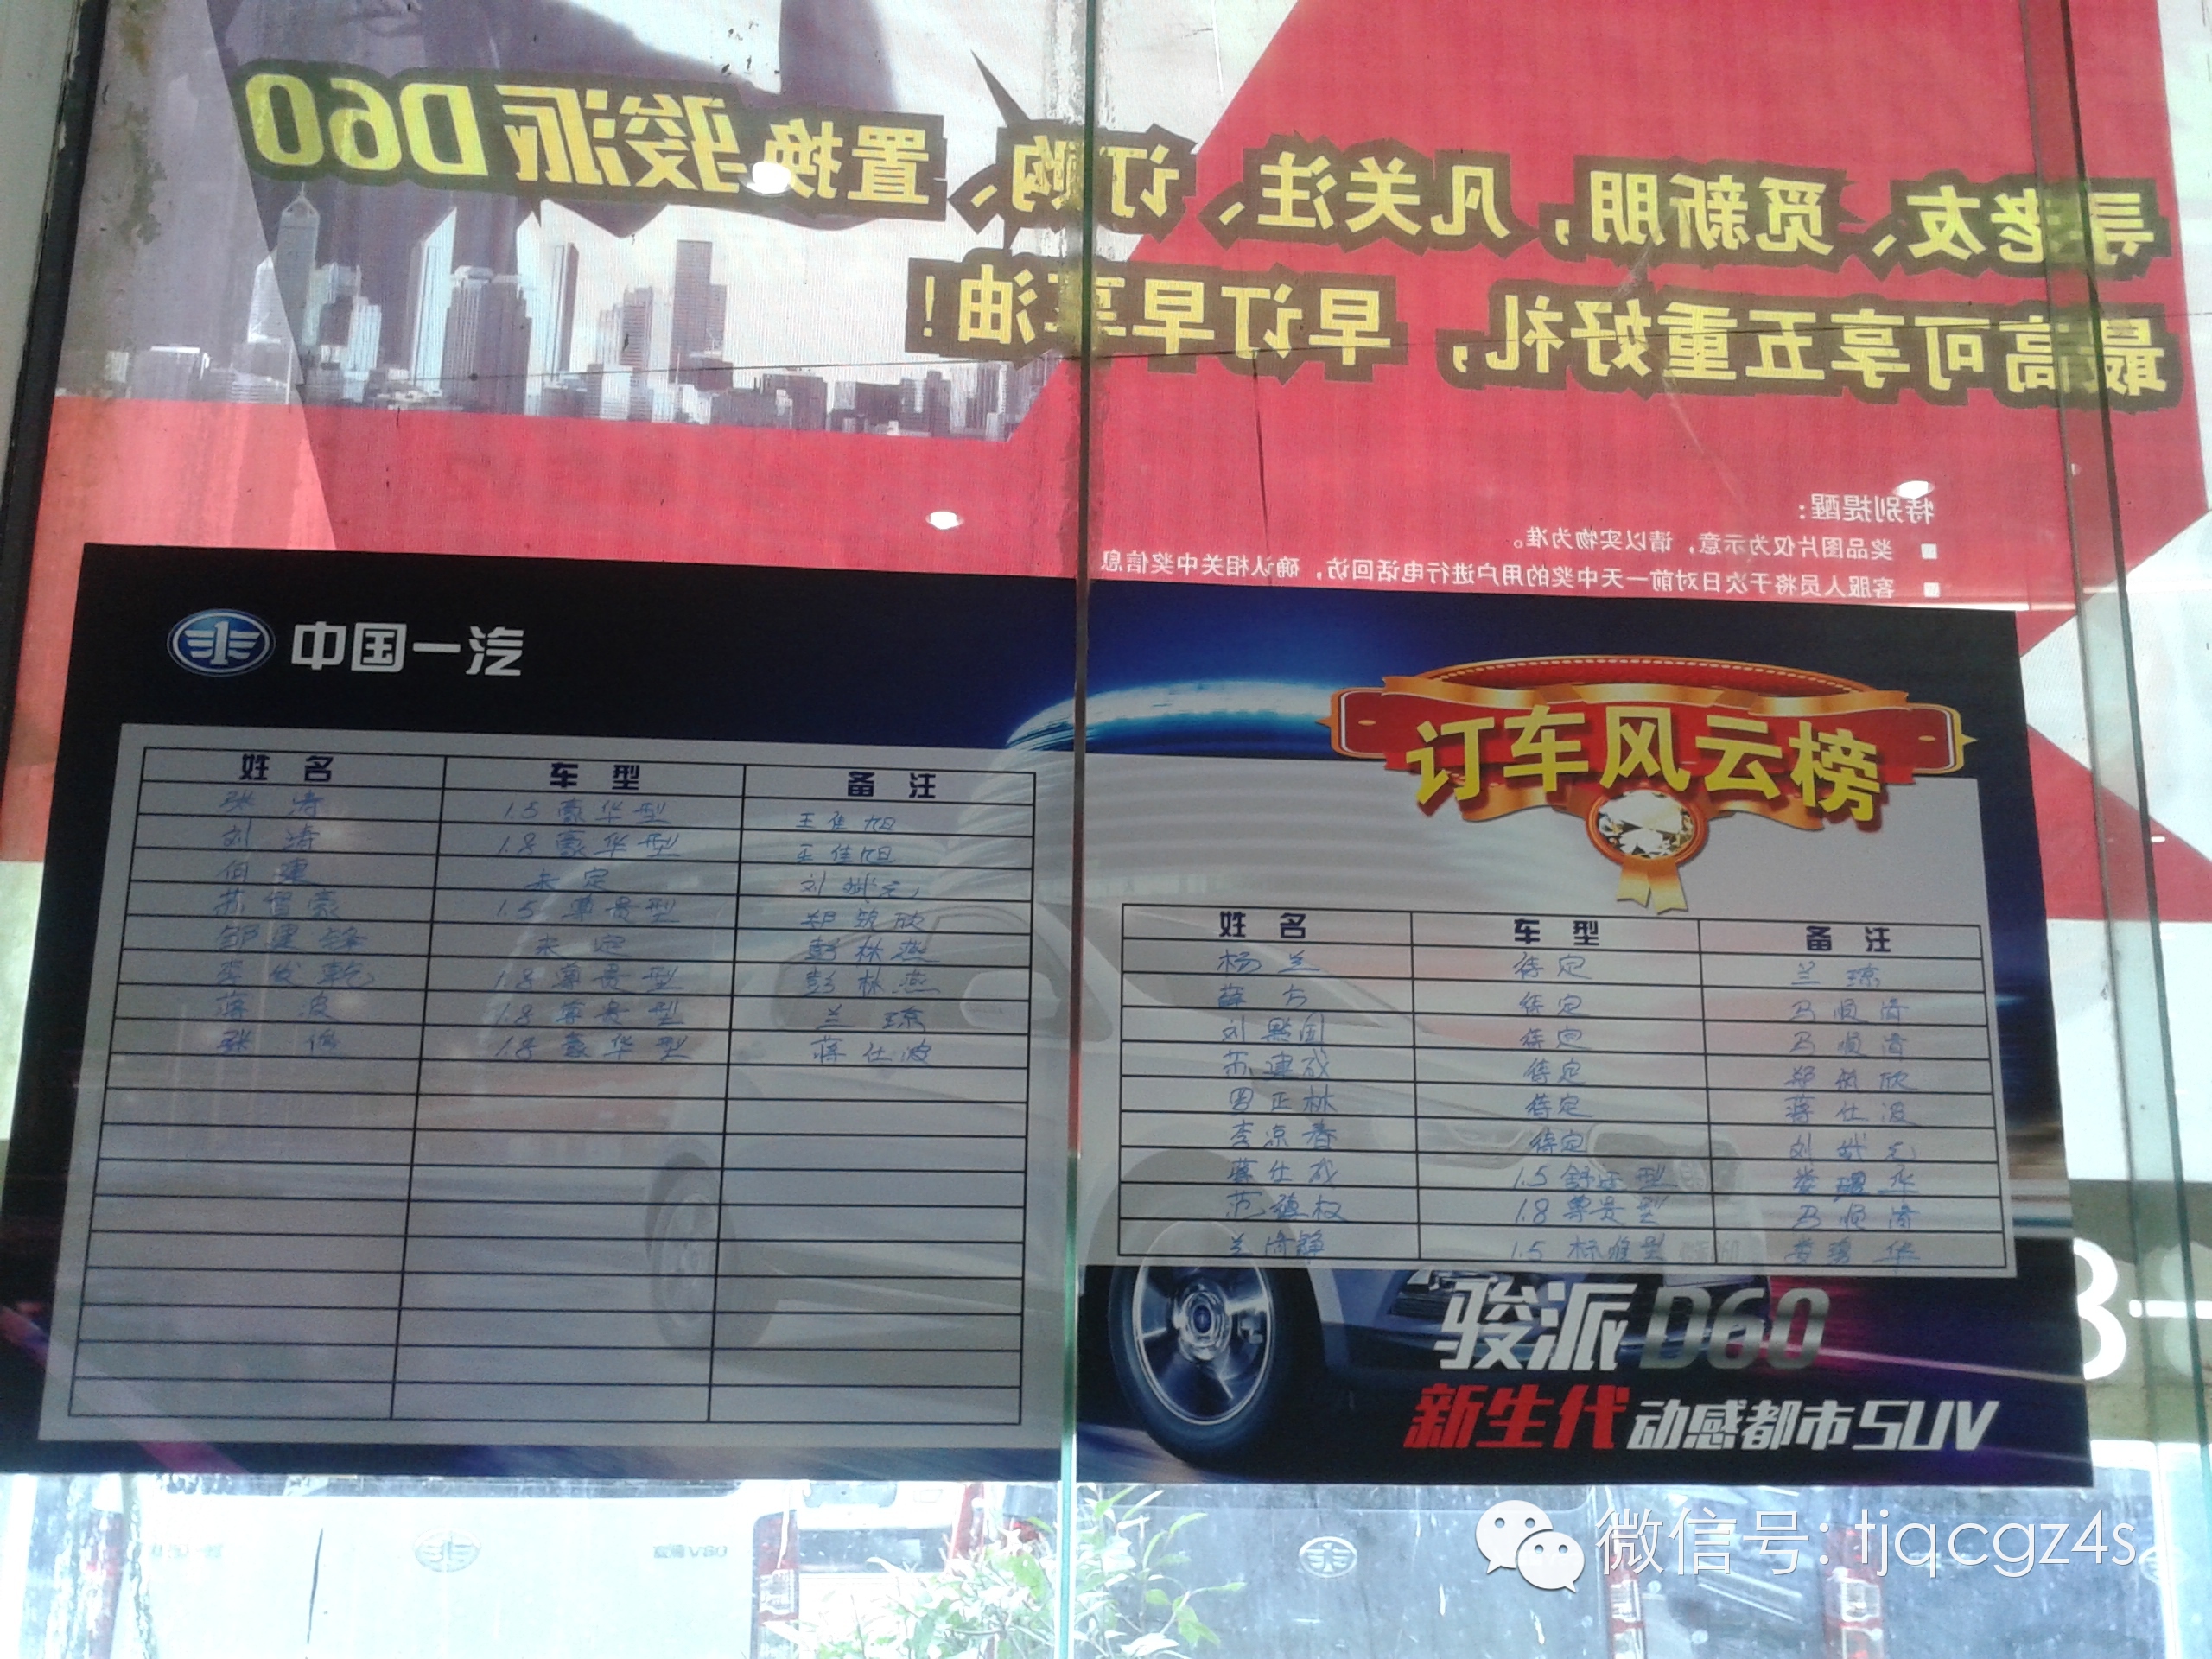 寻老友、觅新朋，凡关注、订购、置换骏派D60
最高可享五重好礼，早订早享油！
特别提醒：
■ 奖品图片仅为示意，请以实物为准。
■ 客服人员将于次日对前一天中奖的用户进行电话回访，确认相关中奖信息
中国一汽
姓名 车型 备注
张涛 1.5豪华型 王佳旭
刘涛 1.8豪华型 王佳旭
何建 未定 刘斌元
苏智豪 1.5尊贵型 郑筑欣
邹建锋 未定 彭林燕
李俊乾 1.8尊贵型 彭林燕
蒋波 1.8尊贵型 兰琼
张俊 1.8豪华型 蒋仕波
订车风云榜
姓名 车型 备注
杨兰 待定 兰琼
薛方 待定 马顺涛
刘兴国 待定 马顺涛
苏建成 待定 郑筑欣
罗正林 待定 蒋仕波
李凉春 待定 刘斌元
蒋仕成 1.5舒适型
范德权 1.8尊贵型 马顺涛
兰济铮 1.5标准型
骏派D60
新生代动感都市SUV
微信号: tjqcgz4s